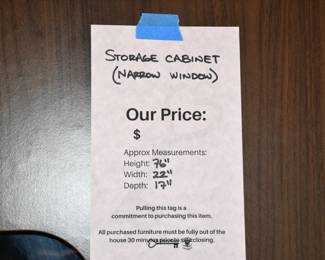 STORAGE CABINET
(NARROW WINDOW)
Our Price:
$
Approx Measurements:
Height: 76"
Width: 22"
Depth: 17"
Pulling this tag is a
commitment to purchasing this item.
All purchased furniture must be fully out of the
house 30 minutes closing.